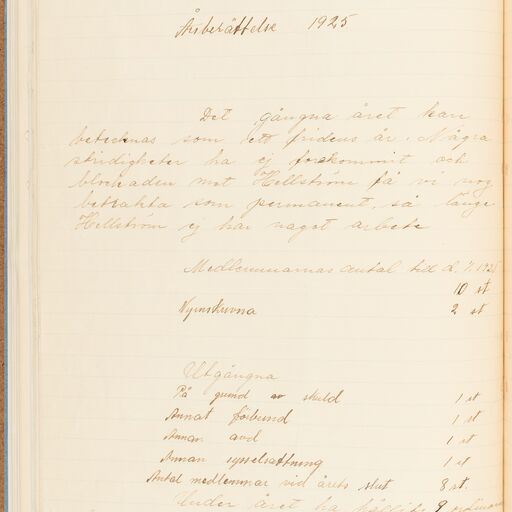 Årsberättelse 1925
Det gångna året kan
betecknas som ett fridens år. Några
stridigheter ha ej förekommit och
blockaden mot Hellström få vi nog
betrakta som permanent, så länge
Hellström ej har något arbete
Medlemmarnas antal tid d. 1/1 1925
10 st
Nyinskrivna 2 st
Utgångna
På grund av skuld 1 st
Annat förbund 1 st
Annan avd 1 st
Annan sysselsättning 1 st
Antal medlemmar vid årets slut 8 st.
Under året ha hållits 9 ordinarie